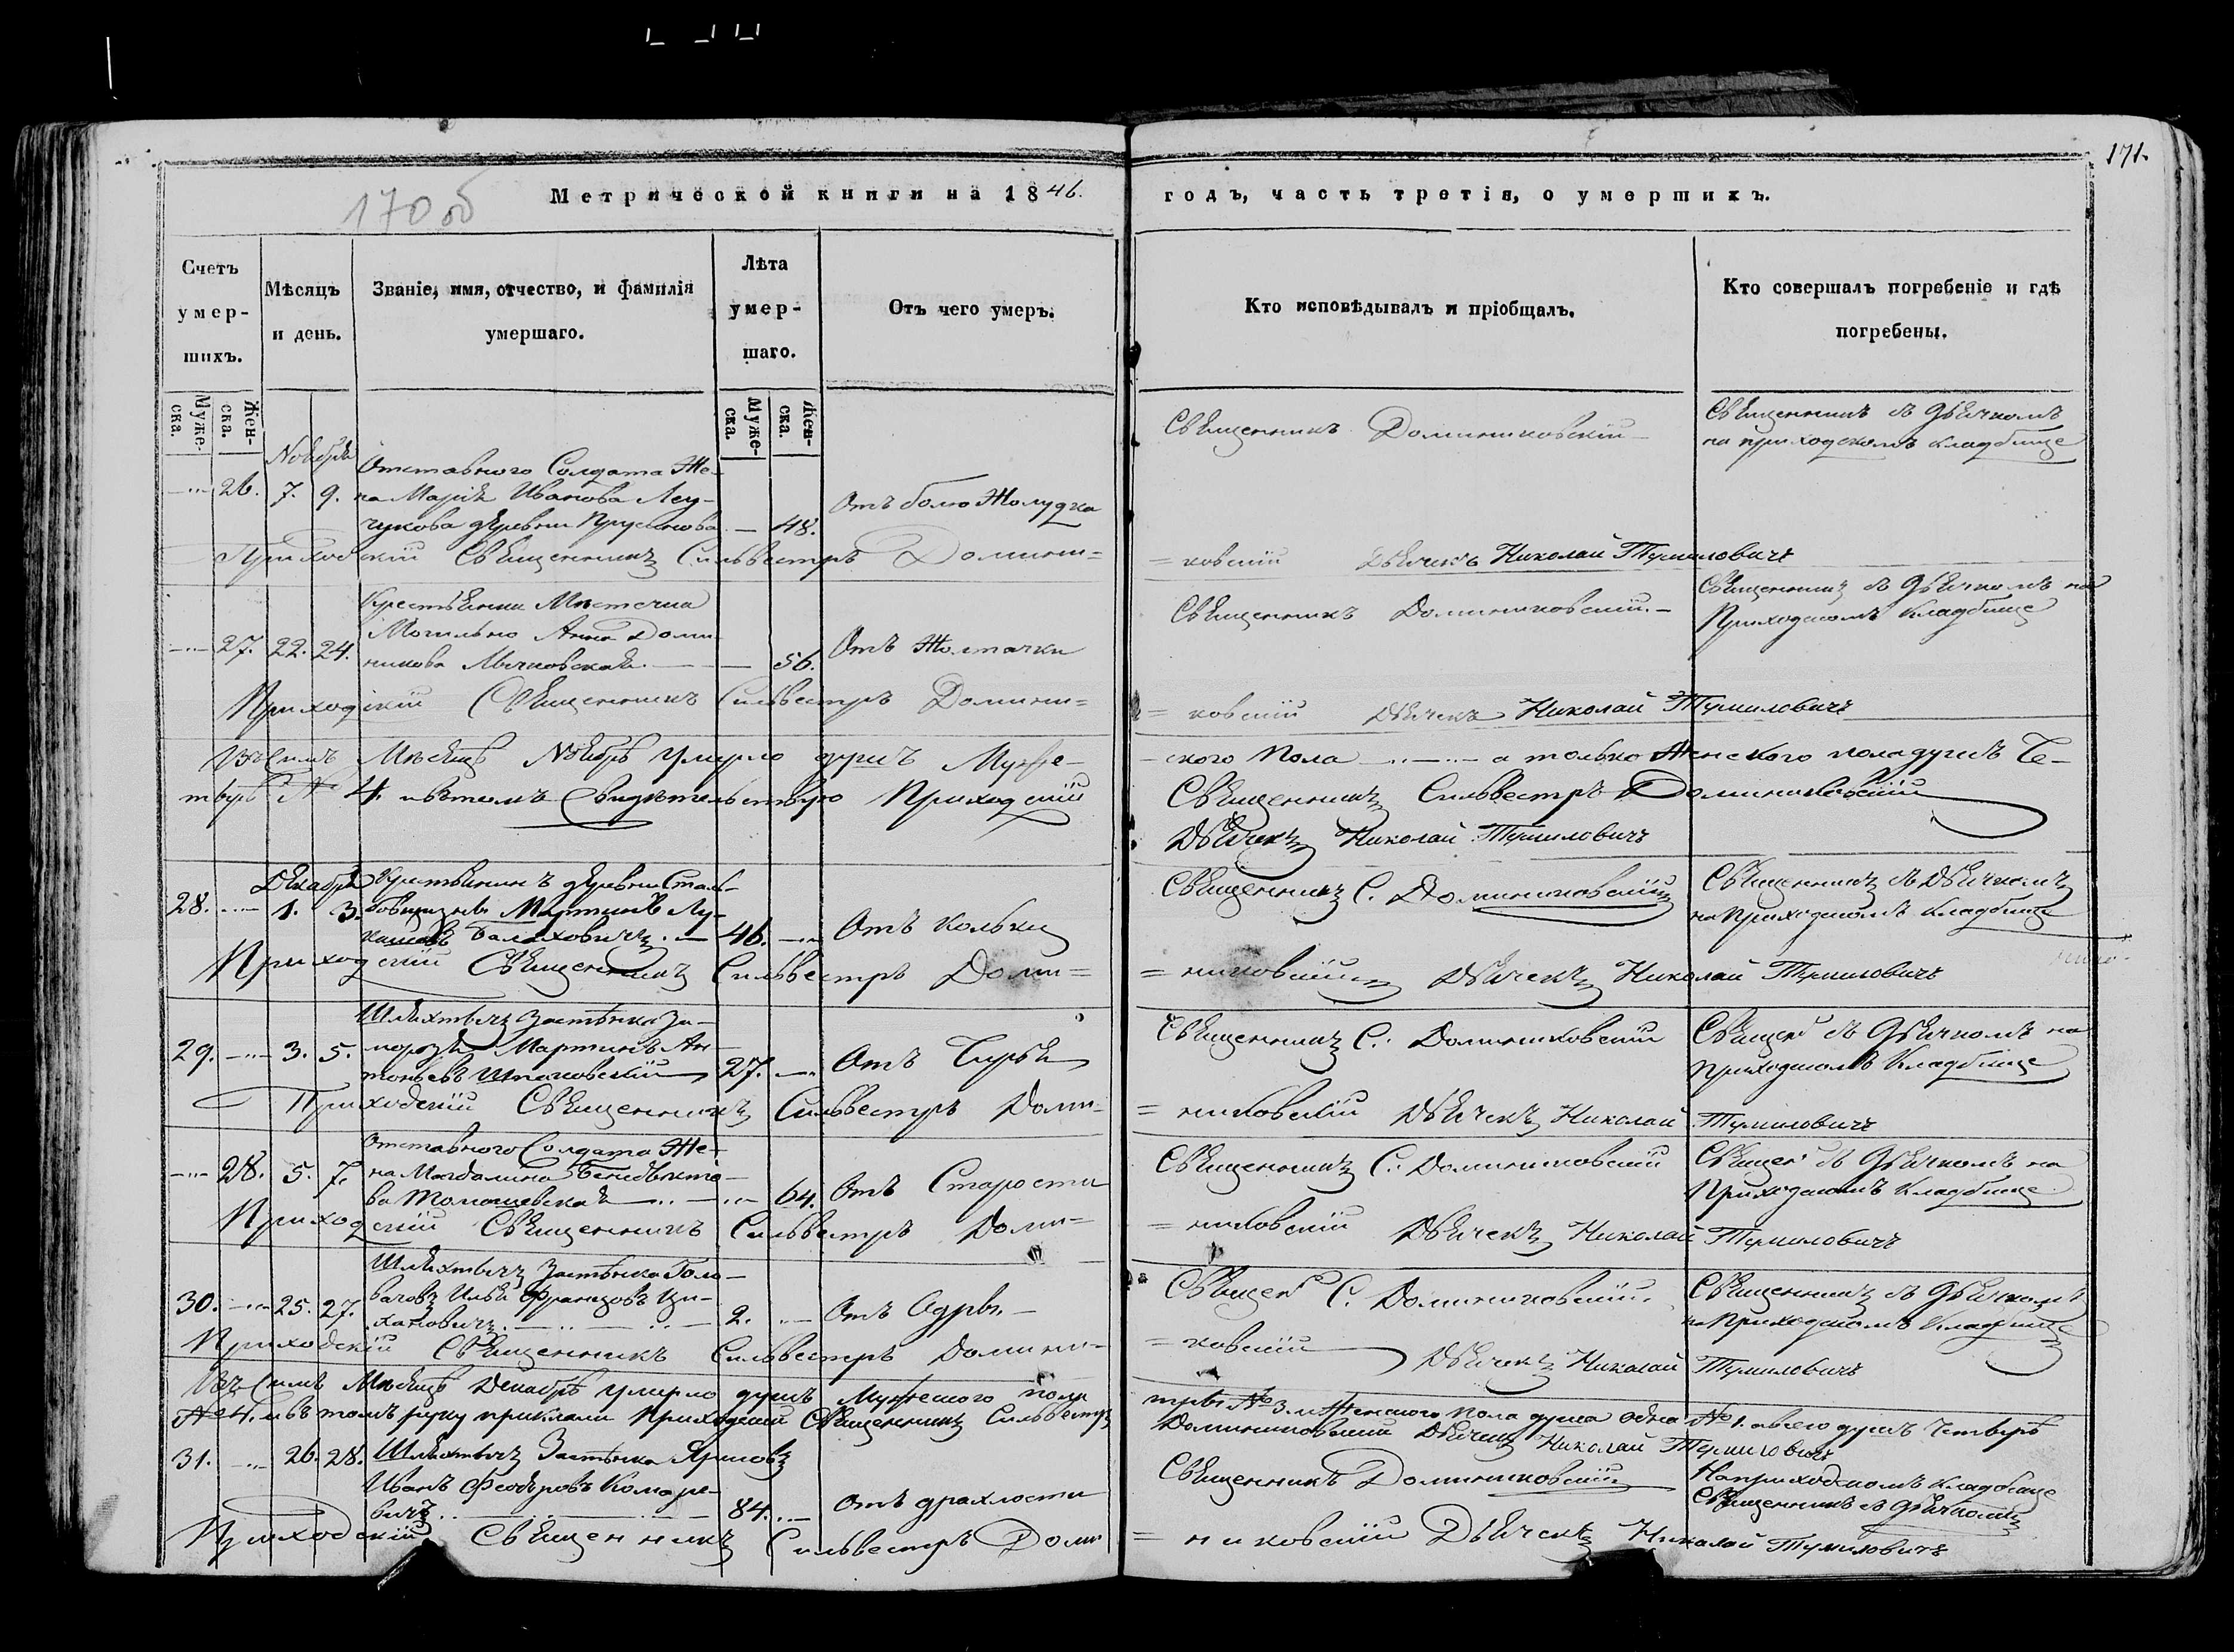 171.
170 об
Метрической книги на 1846. годъ, часть третія, о умершихъ.
Счетъ умер-шихъ.
Мѣсяцъ и день.
Званіе, имя, отчество, и фамилія умершаго.
Лѣта умер-шаго.
Отъ чего умеръ.
Кто исповѣдывалъ и пріобщалъ.
Кто совершалъ погребеніе и гдѣ погребены.
Муже-ска.
Жен-ска.
Муже-ска.
Жен-ска.
Ноября
26. 7. 9.
Отставного Солдата Же-
на Марія Иванова
деревни
48.
Отъ болю Жолудка
Священникъ Доминиковскій
Священникъ съ Дьячкомъ
на приходскомъ кладбище
Приходскій Священникъ Сильвестръ Домини=
=ковскій Дьячекъ Николай Тумиловичъ
27. 22. 24.
Крестьянка Мѣстечка
Могильно Анна Доми
никова
56.
Отъ Жолтачки
Священникъ Доминиковскій.
Священникъ съ Дьячкомъ на
Приходскомъ Кладбище
Приходскій Священникъ Сильвестръ Домини=
=ковскій Дьячекъ Николай Тумиловичъ
Мѣсяцѣ Ноябрѣ Умерло душъ Муже-
ского Пола а только Женского пола душъ Че-
4. Приходскій
Священникъ Сильвестръ Доминиковскій
Дьячекъ Николай Тумиловичъ
Декабря
28. 1. 3.
Крестьянинъ деревни
Мартинъ Лу-
46.
Отъ Кольки
Священникъ С. Доминиковскій
Священникъ съ Дьячкомъ
на Приходскомъ Кладбище
Приходскій Священникъ Сильвестръ Доми=
=никовскій Дьячекъ Николай Тумиловичъ
29. 3. 5.
Шляхтичъ Застѣнка За-
Мартинъ Ан
тоньевъ
27.
Отъ
Священникъ С. Доминиковскій
Священ съ Дьячкомъ на
приходскомъ Кладбище
Приходскій Священникъ Сильвестръ Доми=
=никовскій Дьячекъ Николай Тумиловичъ
28. 5. 7.
Отставного Солдата Же-
на Магдалина Бенедыкто-
ва Томашевская
64.
Отъ Старости
Священникъ С. Доминиковскій
Священ съ Дьячкомъ на
Приходскомъ Кладбище
Приходскій Священникъ Сильвестръ Доми=
=никовскій Дьячекъ Николай Тумиловичъ
30. 25. 27.
Шляхтичъ Застѣнка
Илья Францовъ
2.
Отъ Одры
Священ С. Доминиковскій.
Священникъ съ Дьячкомъ
на Приходскомъ Кладбище
Приходскій Священникъ Сильвестръ Домини=
=ковскій Дьячекъ Николай Тумиловичъ
Мѣсяцѣ Декабрѣ умерло душъ Мужеского пола
три №3. и Женского Пола душа одна №1. а всего душъ Четыре
№4. въ томъ руку приклали Приходскій Священникъ Сильвестръ
Доминиковскій Дьячекъ Николай Тумиловичъ
31. 26. 28.
Шляхтичъ Застѣнка
Иванъ Феодоровъ Комаре-
вичъ
84.
Отъ драхлости
Священникъ Доминиковскій
На приходскомъ Кладбище
Священникъ съ Дьячкомъ
Приходскій Священникъ Сильвестръ Доми
=никовскій Дьячекъ Николай Тумиловичъ